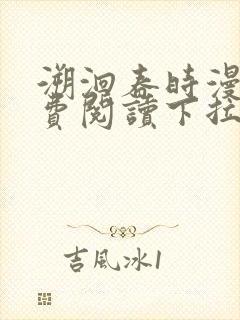 溯洄春時漫
費閱讀下拉
吉風冰1